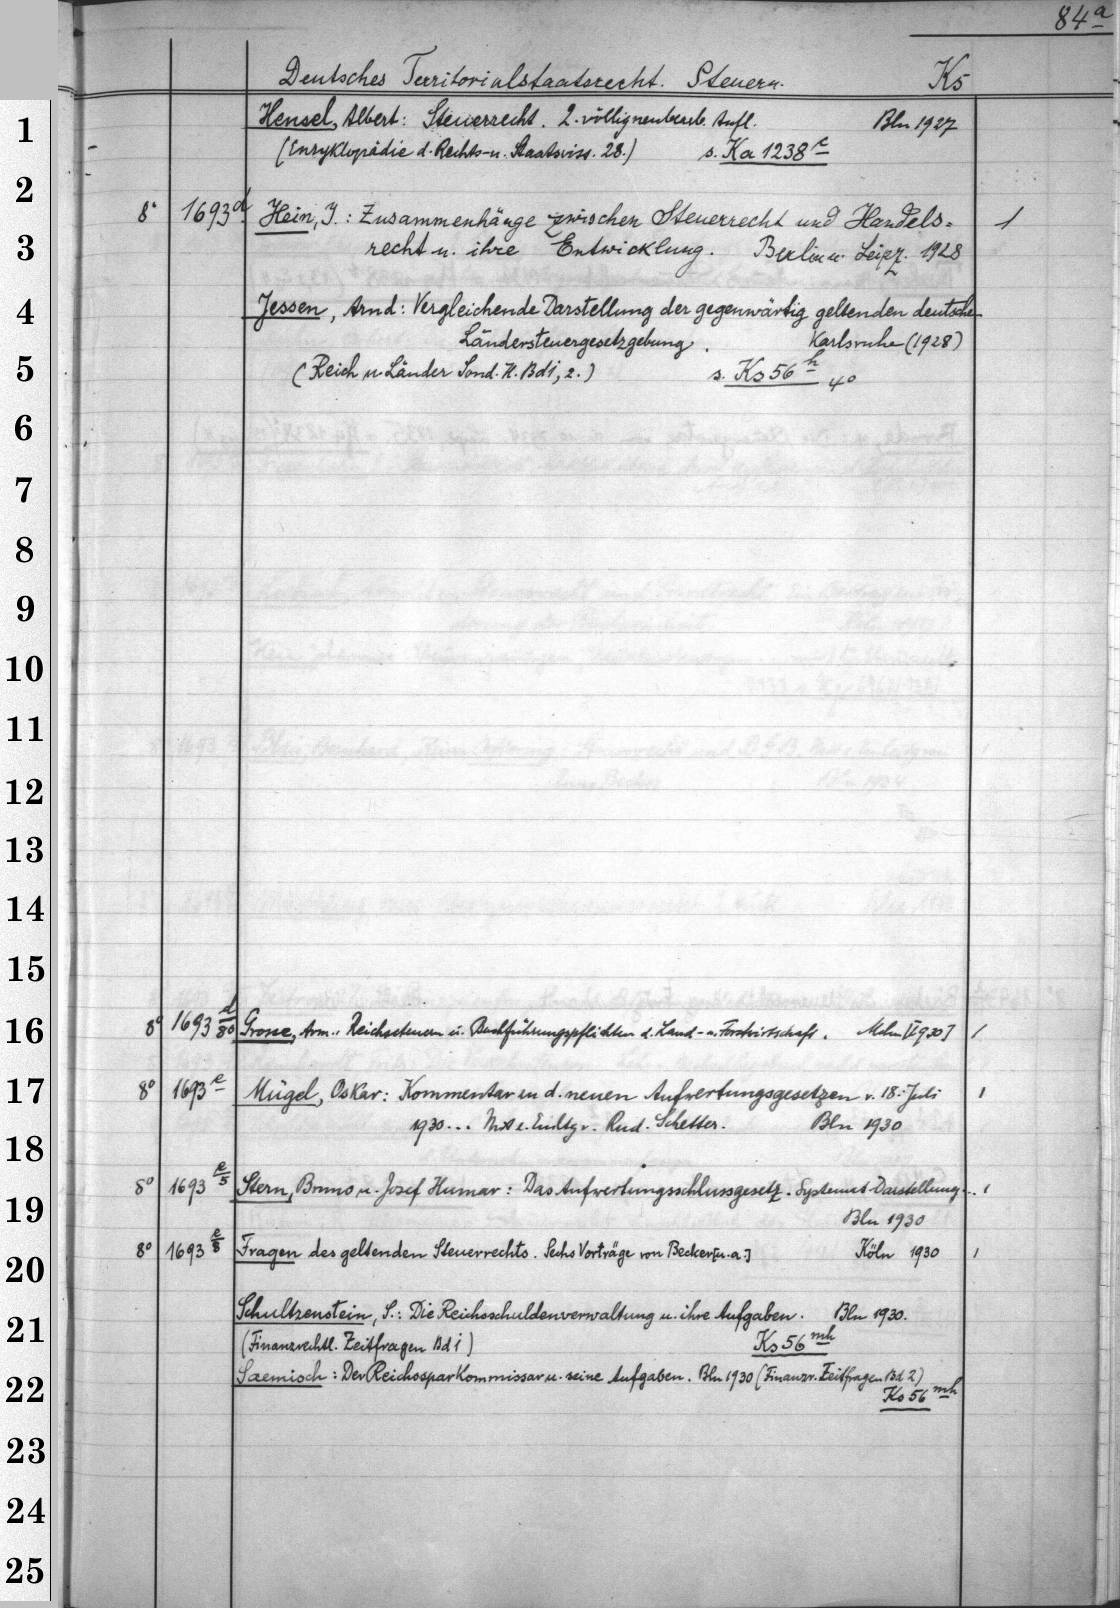 84a
Deutsches Territorialstaatsrecht. Steuern. Ks
1 Hensel, Albert: Steuerrecht. 2. völlig neubearb. Aufl. Bln 1927
(Enzyklopädie d. Rechts- u. Staatswiss. 28.) s. Ka 1238 e
2
8° 1693 d Hein, J.: Zusammenhänge zwischen Steuerrecht und Handels= 1
3 recht u. ihre Entwicklung. Berlin u. Leipz. 1928
4 Jessen, Arnd: Vergleichende Darstellung der gegenwärtig geltenden deutschen
Ländersteuergesetzgebung. Karlsruhe (1928)
5 (Reich u. Länder Sond. H. Bd 1, 2.) s. Ks 56 h 4°
6
7
8
9
10
11
12
13
14
15
16 8° 1693 d/80 Grosse, Arm.: Reichssteuern u. Buchführungspflichten d. Land- u. Forstwirtschaft. [1930] 1
17 8° 1693 e Mügel, Oskar: Kommentar zu d. neuen Aufwertungsgesetzen v. 18. Juli 1
1930... Mit e. Einltg v. Rud. Schetter. Bln 1930
18
8° 1693 e/5 Stern, Bruno u. Josef Humar: Das Aufwertungsschlussgesetz. Systemat. Darstellung... 1
19 Bln 1930
8° 1693 e/8 Fragen des geltenden Steuerrechts. Sechs Vorträge von Becker [u. a.] Köln 1930 1
20
Schultzenstein, S.: Die Reichsschuldenverwaltung u. ihre Aufgaben. Bln 1930.
21 (Finanzrechtl. Zeitfragen Bd 1) Ks 56 mh
22 Saemisch: Der Reichssparkommissar u. seine Aufgaben. Bln 1930 (Finanzr. Zeitfragen Bd 2)
Ks 56 mh
23
24
25